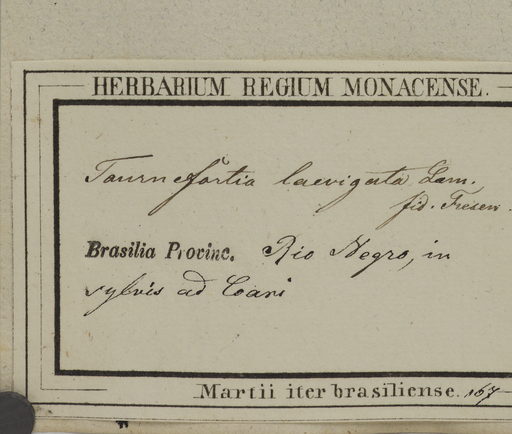 HERBARIUM REGIUM MONACENSE.
Tournefortia laevigata Lam.
fid. Fresen.
Brasilia Provinc. Rio Negro, in
sylvis ad Coari
Martii iter brasiliense. 167